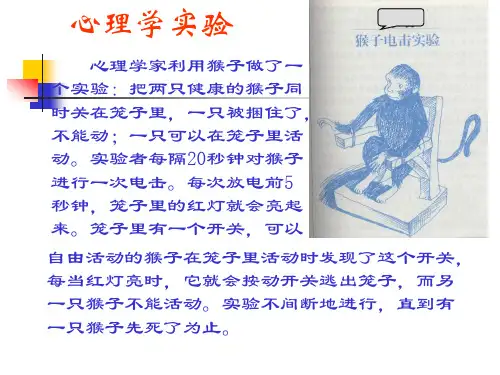 心理学实验
猴子电击实验
心理学家利用猴子做了一
个实验：把两只健康的猴子同
时关在笼子里，一只被捆住了，
不能动；一只可以在笼子里活
动。实验者每隔20秒钟对猴子
进行一次电击。每次放电前5
秒钟，笼子里的红灯就会亮起
来。笼子里有一个开关，可以
自由活动的猴子在笼子里活动时发现了这个开关，
每当红灯亮时，它就会按动开关逃出笼子，而另
一只猴子不能活动。实验不间断地进行，直到有
一只猴子先死了为止。